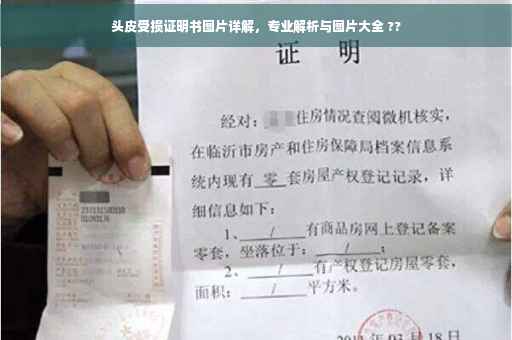 头皮受损证明书图片详解，专业解析与图片大全 ??
证 明
经对：住房情况查阅微机核实，
在临沂市房产和住房保障局档案信息系
统内现有 零 套房屋产权登记记录，详
细信息如下：
1、 / 有商品房网上登记备案
零套，坐落位于： / ；
2、 / 有产权登记房屋零套，
面积： / 平方米。
03 月 18 日